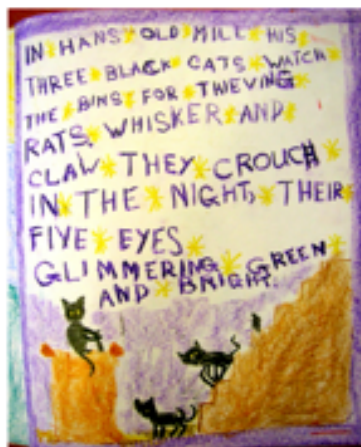 IN HANS' OLD MILL HIS
THREE BLACK CATS WATCH
THE BINS FOR THIEVING
RATS. WHISKER AND
CLAW THEY CROUCH
IN THE NIGHT, THEIR
FIVE EYES
GLIMMERING GREEN
AND BRIGHT.